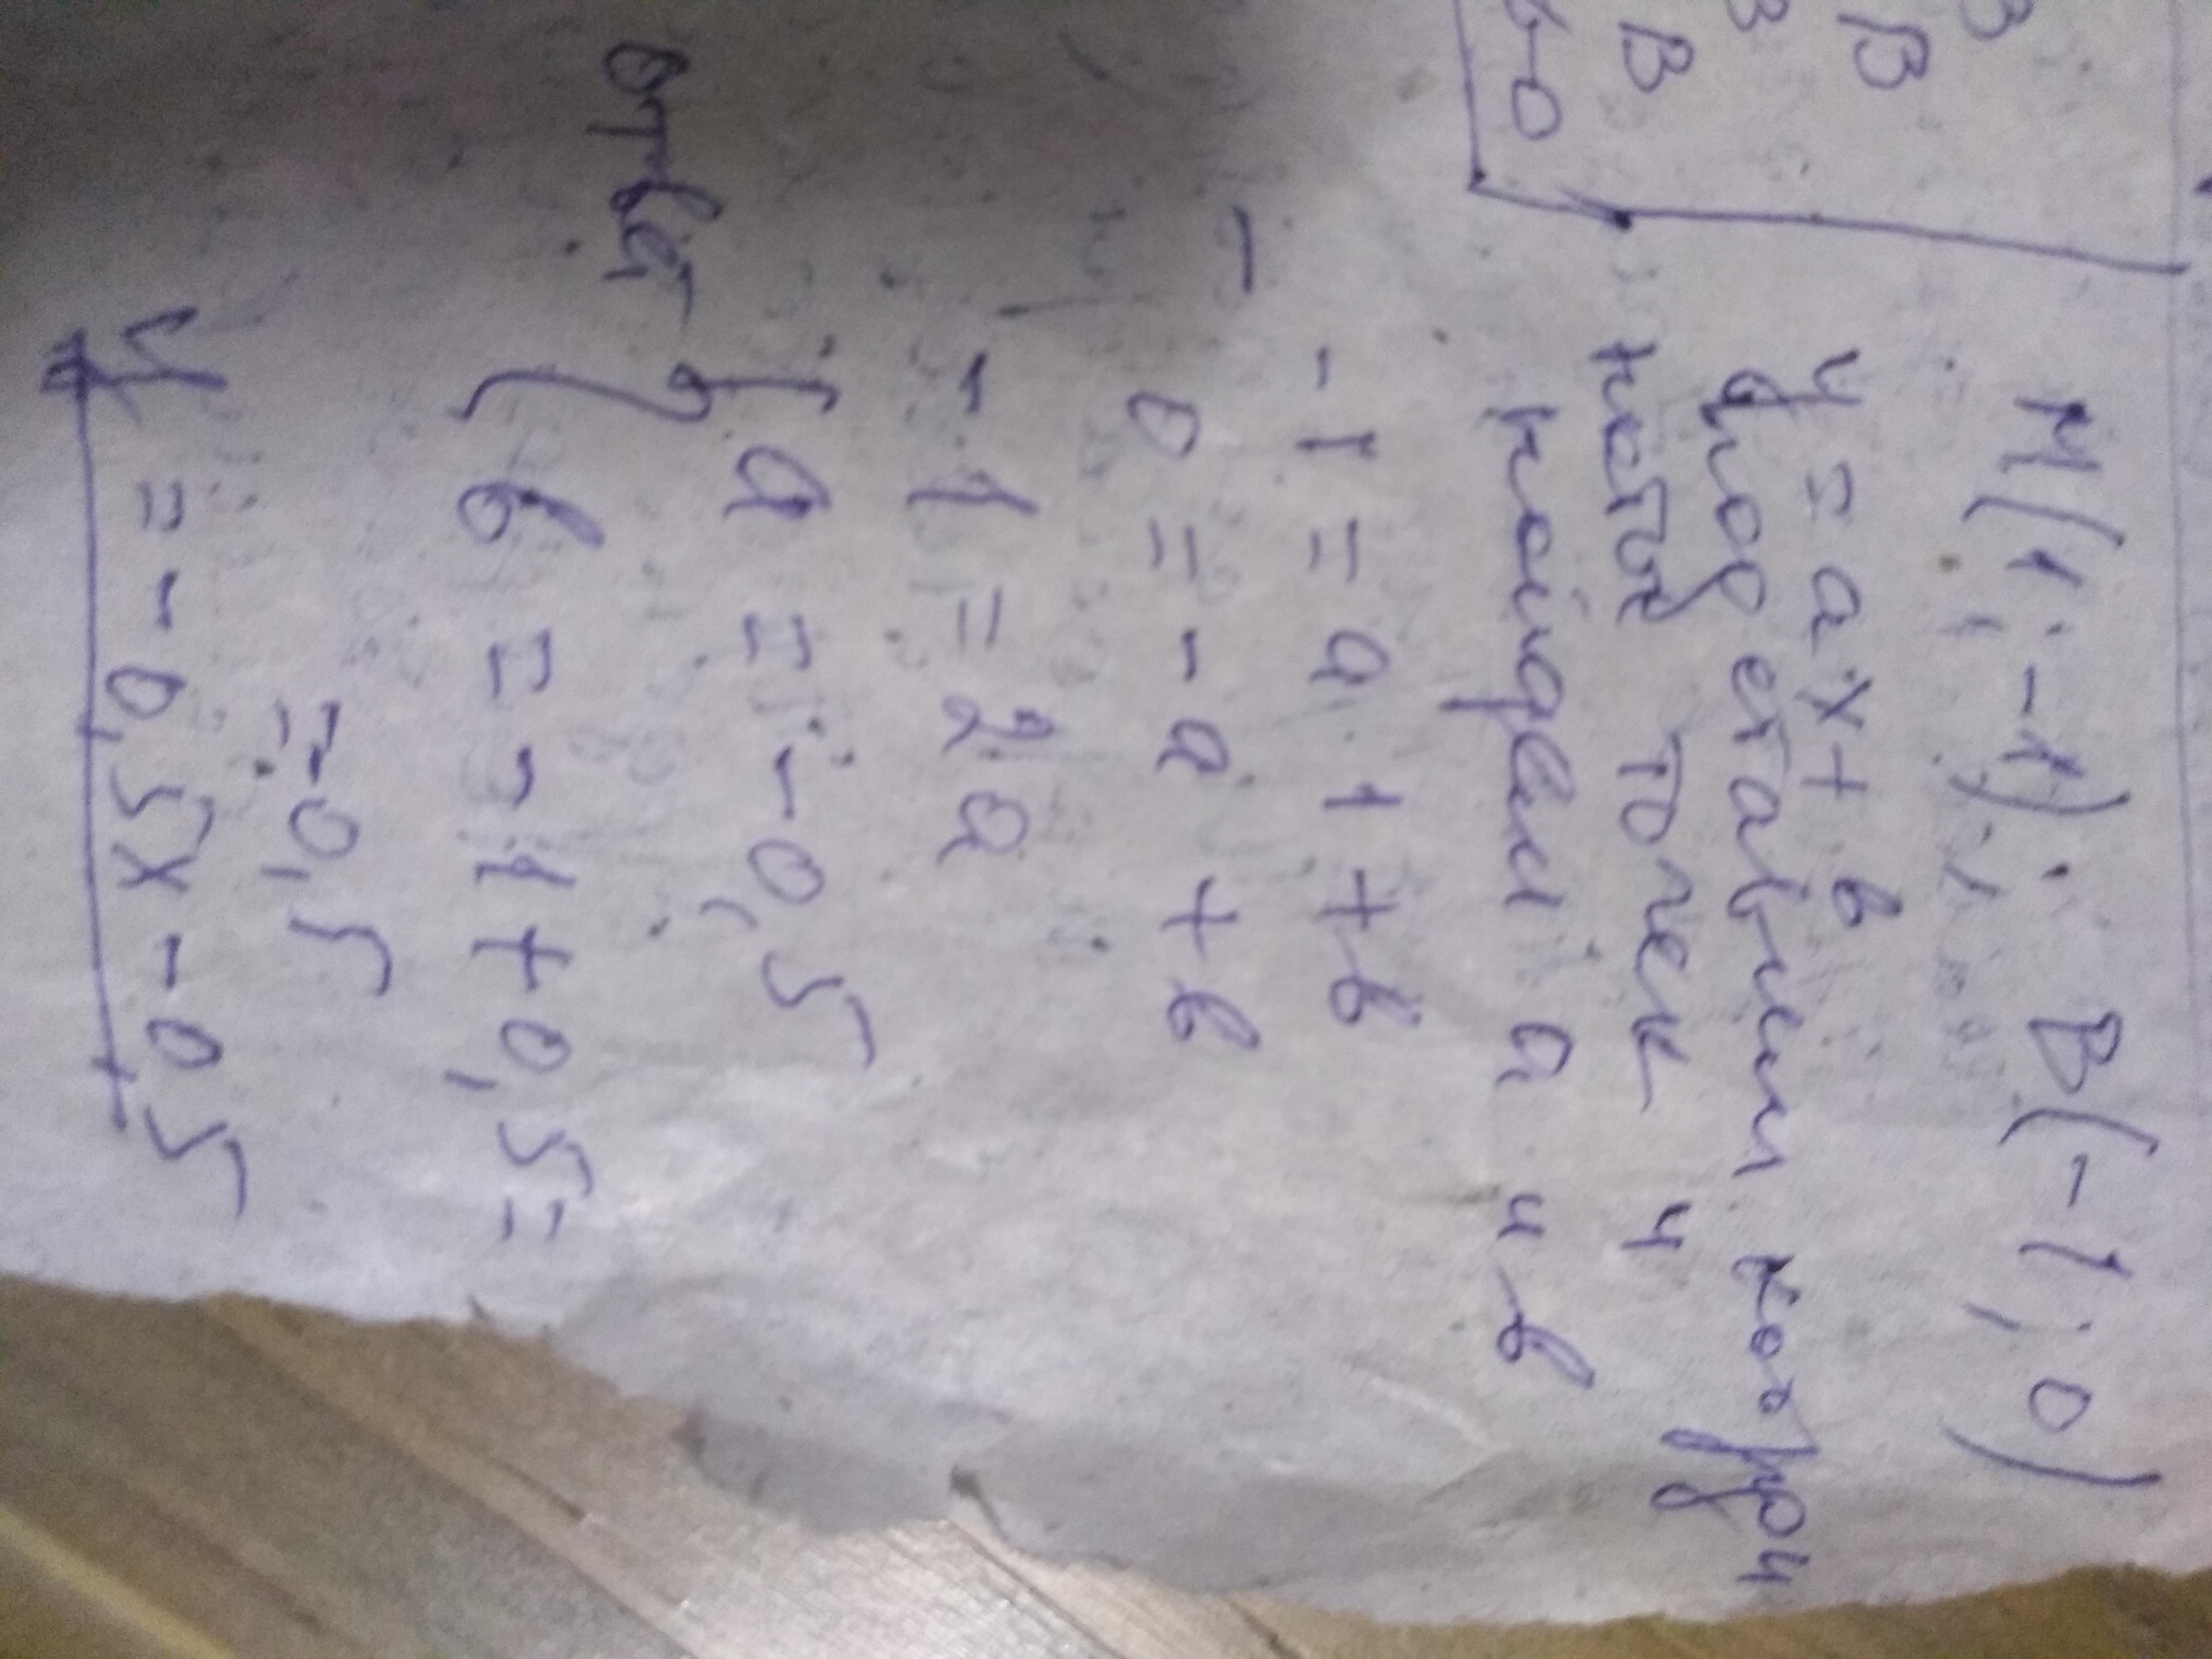 В
В
В
В
60
M(1; -1); B(-1; 0)
y = ax + в
подставим коорди
наты точек и
найдём а и в
-1 = a · 1 + в
0 = -a + в
-1 = 2a
a = -0,5
в = -1 + 0,5 =
= -0,5
ответ
y = -0,5x - 0,5